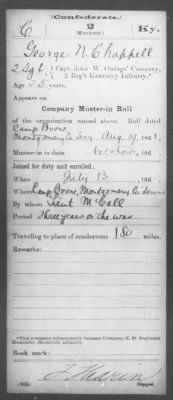 (Confederate.)
C 2 Ky.
(Mounted.)
George N. Chappell
2 Sgt, Capt. John W. Owings' Company,
2 Reg't Kentucky Infantry.*
Age 25 years.
Appears on
Company Muster-in Roll
of the organization named above. Roll dated
Camp Boone,
Montgomery Co Tenn, Aug 17, 1861.
Muster-in to date 186
Joined for duty and enrolled:
When July 13, 186
Where Camp Boone, Montgomery Co Tenn
By whom Lieut McCall
Period Three years or the war
Traveling to place of rendezvous 180 miles.
Remarks:
*This company subsequently became Company
Book mark:
Copyist.